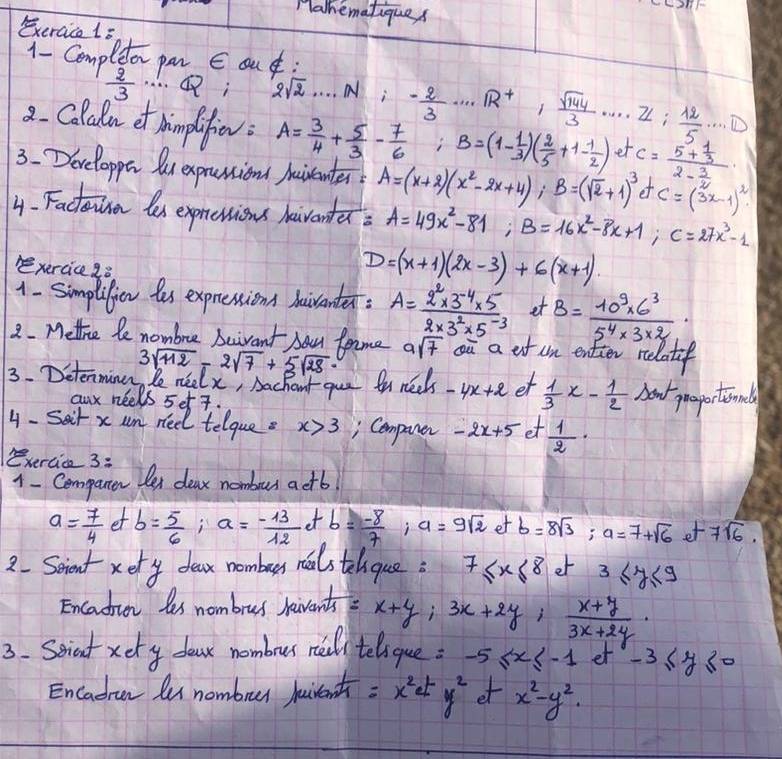 Mathématiques
Exercice 1:
1- Completer par ∈ ou ∉ :
2/3 .... Q ; 2√2 .... N ; -2/3 .... R⁺ , √144/3 ..... Z ; 12/5 .... D
2- Calculer et simplifier : A = 3/4 + 5/3 - 7/6 ; B = (1-1/3)(2/5+1-1/2) et C = (5+1/3)/(2-3/2).
3- Développer les expressions suivantes : A = (x+2)(x²-2x+4) ; B = (√2+1)³ et C = (3x-1)².
4- Factoriser les expressions suivantes : A = 49x²-81 ; B = 16x²-8x+1 ; C = 27x³-1
D = (x+1)(2x-3) + 6(x+1).
Exercice 2:
1- Simplifier les expressions suivantes : A = (2²×3⁻⁴×5)/(2×3²×5⁻³) et B = (10⁹×6³)/(5⁴×3×2).
2- Mettre le nombre suivant sous forme a√7 où a est un entier relatif
3√112 - 2√7 + 5√28.
3- Déterminer le réel x, sachant que les réels -4x+2 et 1/3 x - 1/2 sont proportionnels
aux réels 5 et 7.
4- Soit x un réel telque : x>3 ; Comparer -2x+5 et 1/2.
Exercice 3:
1- Comparer les deux nombres a et b.
a = 7/4 et b = 5/6 ; a = -13/12 et b = -8/7 ; a = 9√2 et b = 8√3 ; a = 7+√6 et 7√6.
2- Soient x et y deux nombres réels tels que : 7 ⩽ x ⩽ 8 et 3 ⩽ y ⩽ 9
Encadrer les nombres suivants : x+y ; 3x+2y ; (x+y)/(3x+2y).
3- Soient x et y deux nombres réels tels que : -5 ⩽ x ⩽ -1 et -3 ⩽ y ⩽ 0
Encadrer les nombres suivants : x² et y² et x²-y².